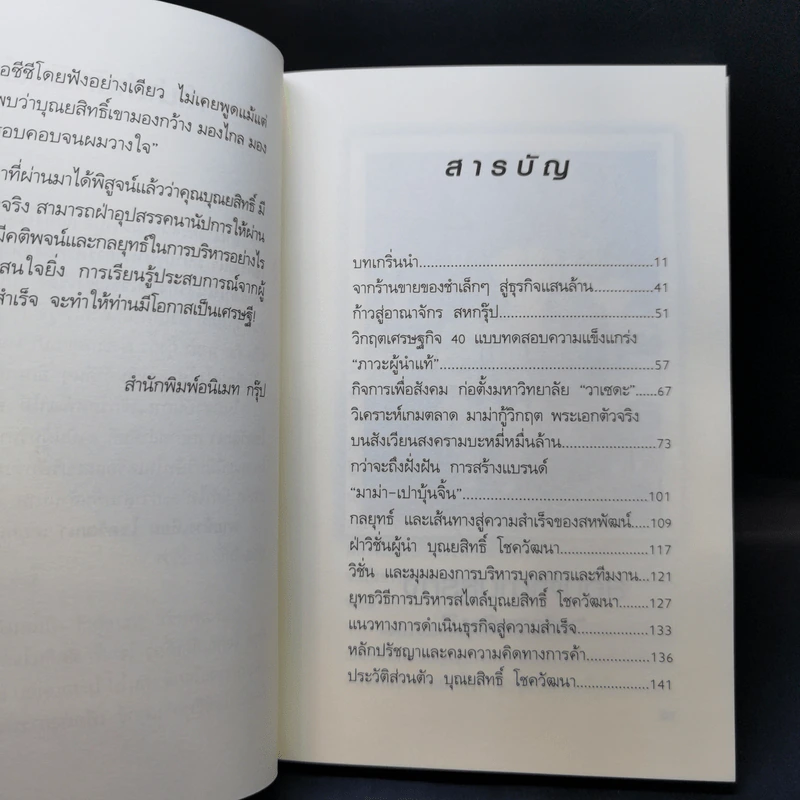 อซีซีโดยฟังอย่างเดียว ไม่เคยพูดแม้แต่
พบว่าบุณยสิทธิ์เขามองกว้าง มองไกล มอง
รอบคอบจนผมวางใจ”
าที่ผ่านมาได้พิสูจน์แล้วว่าคุณบุณยสิทธิ์ มี
จริง สามารถฝ่าอุปสรรคนานัปการให้ผ่าน
มีคติพจน์และกลยุทธ์ในการบริหารอย่างไร
สนใจยิ่ง การเรียนรู้ประสบการณ์จากผู้
สำเร็จ จะทำให้ท่านมีโอกาสเป็นเศรษฐี!
สำนักพิมพ์อนิเมท กรุ๊ป
สารบัญ
บทเกริ่นนำ..............................................11
จากร้านขายของชำเล็กๆ สู่ธุรกิจแสนล้าน...........41
ก้าวสู่อาณาจักร สหกรุ๊ป..............................51
วิกฤตเศรษฐกิจ 40 แบบทดสอบความแข็งแกร่ง
“ภาวะผู้นำแท้”..........................................57
กิจการเพื่อสังคม ก่อตั้งมหาวิทยาลัย “วาเซดะ”......67
วิเคราะห์เกมตลาด มาม่ากู้วิกฤต พระเอกตัวจริง
บนสังเวียนสงครามบะหมี่หมื่นล้าน....................73
กว่าจะถึงฝั่งฝัน การสร้างแบรนด์
“มาม่า-เปาบุ้นจิ้น”....................................101
กลยุทธ์ และเส้นทางสู่ความสำเร็จของสหพัฒน์....109
ฝ่าวิชั่นผู้นำ บุณยสิทธิ์ โชควัฒนา..................117
วิชั่น และมุมมองการบริหารบุคลากรและทีมงาน...121
ยุทธวิธีการบริหารสไตล์บุณยสิทธิ์ โชควัฒนา.......127
แนวทางการดำเนินธุรกิจสู่ความสำเร็จ...............133
หลักปรัชญาและคมความคิดทางการค้า...............136
ประวัติส่วนตัว บุณยสิทธิ์ โชควัฒนา................141